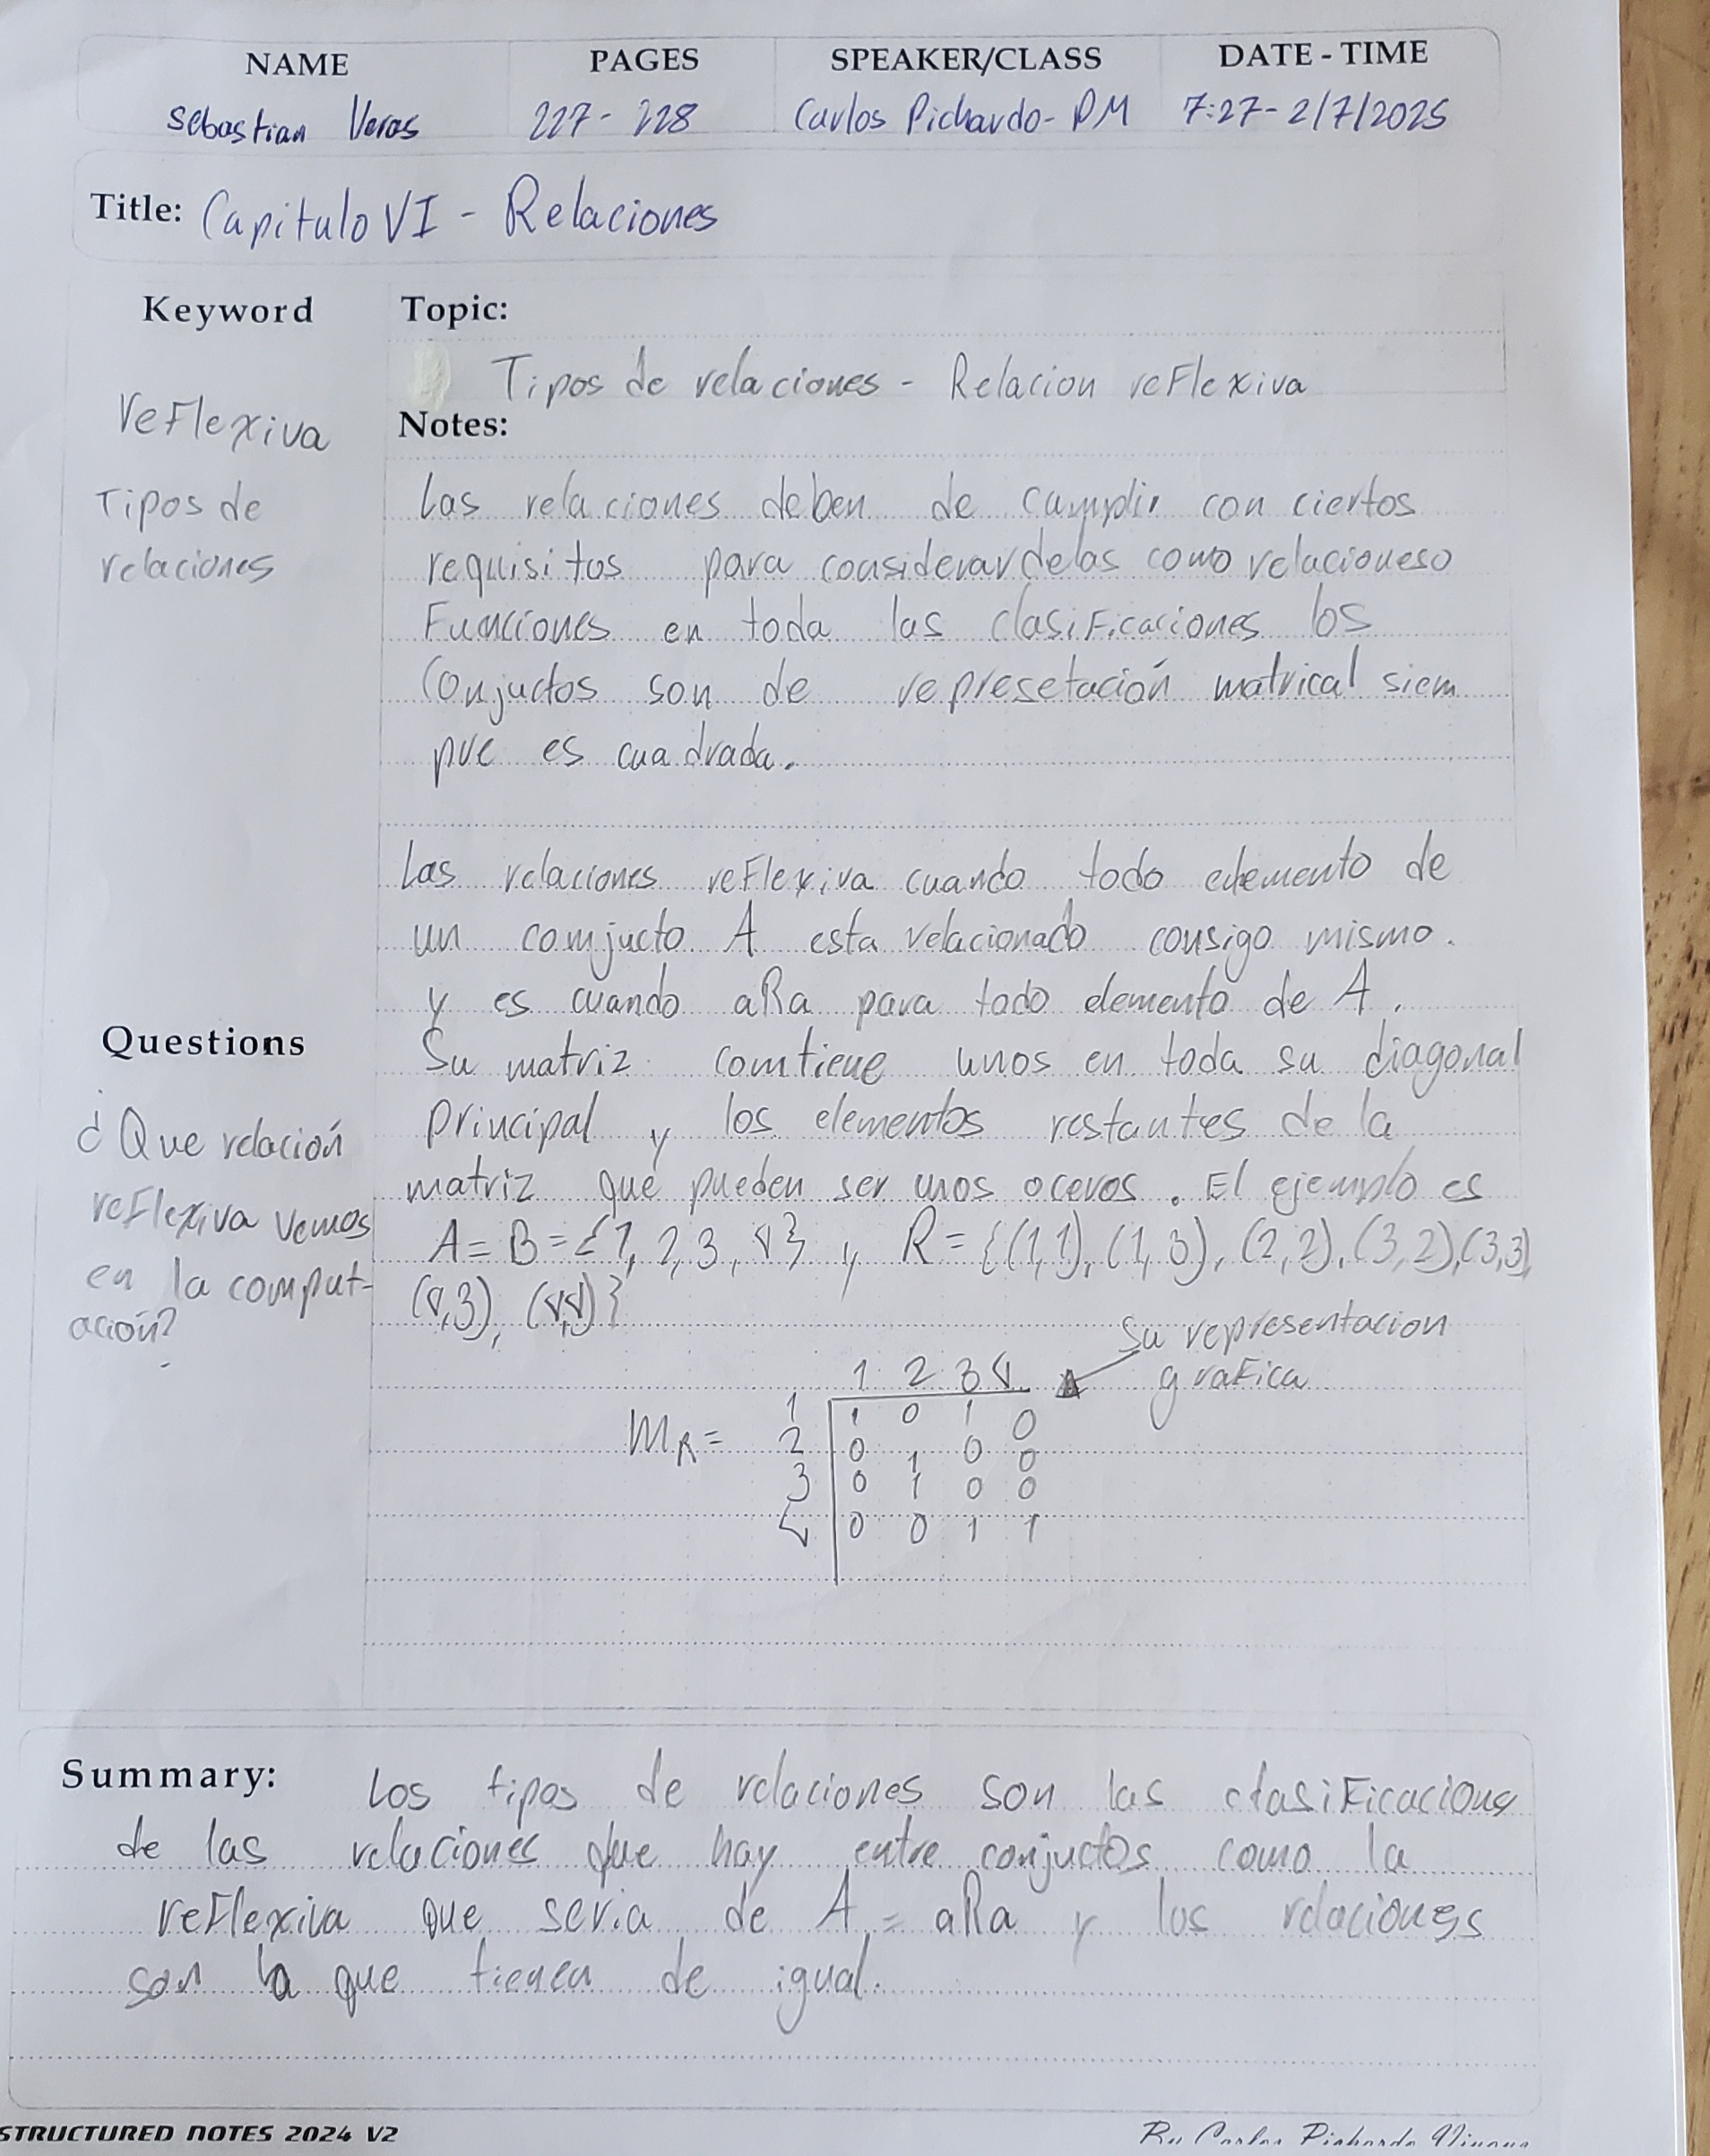 NAME PAGES SPEAKER/CLASS DATE - TIME
Sebastian Veras 227 - 228 Carlos Pichardo - DM 7:27 - 2/7/2025
Title: Capitulo VI - Relaciones
Keyword
reflexiva
Tipos de
relaciones
Topic:
Tipos de relaciones - Relacion reflexiva
Notes:
Las relaciones deben de cumplir con ciertos
requisitos para considerardelas como relaciones o
Funciones en toda las clasificaciones los
Conjuctos son de represetación matrical siem
pre es cuadrada.
Las relaciones reflexiva cuando todo elemento de
un comjucto A esta relacionado consigo mismo.
y es cuando aRa para todo elemento de A.
Su matriz comtiene unos en toda su diagonal
Principal y los elementos restantes de la
matriz que pueden ser unos o ceros. El ejemplo es
A = B = {1, 2, 3, 4} y R = {(1,1), (1,3), (2,2), (3,2), (3,3),
(4,3), (4,4)}
Su representacion
grafica
1 2 3 4
MR =
1 1 0 1 0
2 0 1 0 0
3 0 1 0 0
4 0 0 1 1
Questions
¿Que relación
reflexiva vemos
en la comput-
ación?
Summary: Los tipos de relaciones son las clasificacions
de las relaciones que hay entre conjuctos como la
reflexiva que seria de A = aRa y las relaciones
son lo que tienen de igual.
STRUCTURED NOTES 2024 V2
By Carlos Pichardo